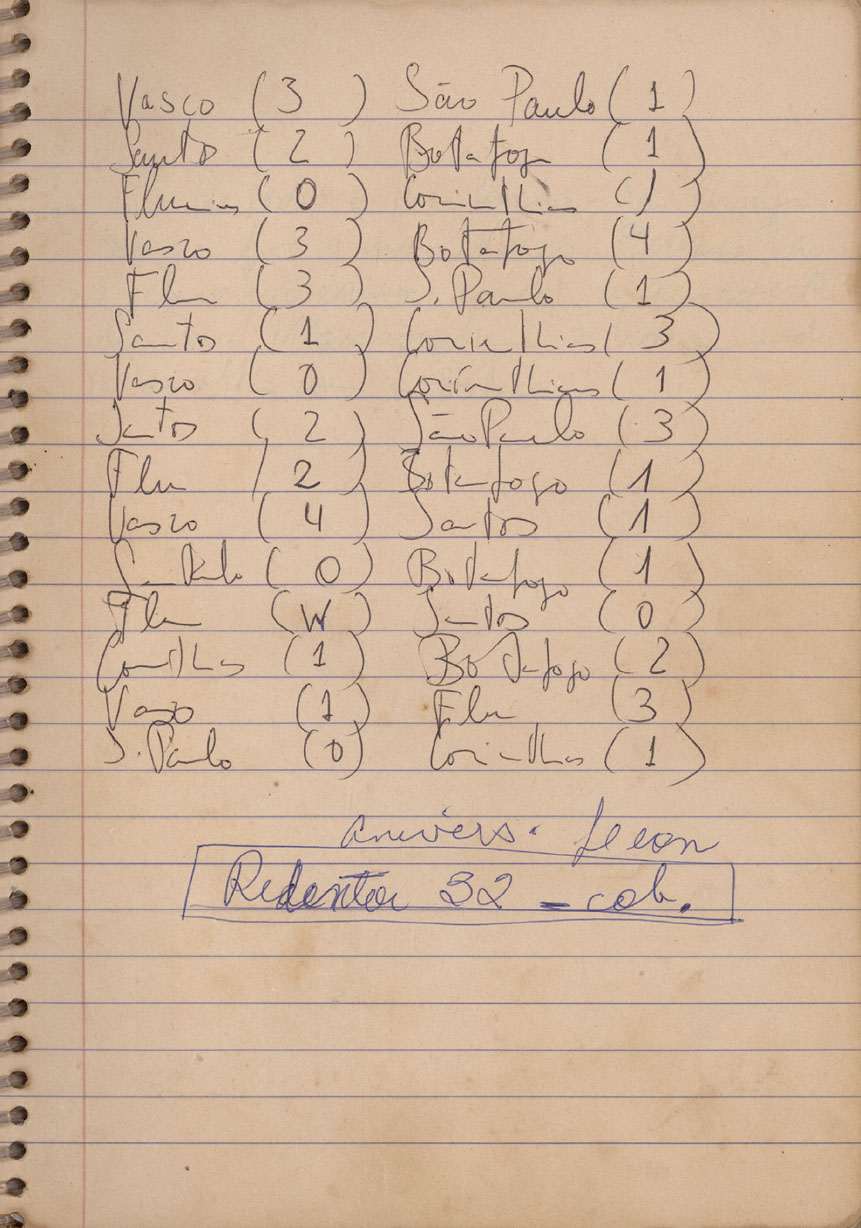 Vasco (3) São Paulo (1)
Santos (2) Botafogo (1)
Flumin (0) Corinthians (1)
Vasco (3) Botafogo (4)
Flu (3) S. Paulo (1)
Santos (1) Corinthias (3)
Vasco (0) Corínthians (1)
Santos (2) São Paulo (3)
Flu (2) Botafogo (1)
Vasco (4) Santos (1)
San Paulo (0) Botafogo (1)
Flu (W) Santos (0)
Corinthias (1) Botafogo (2)
Vasco (1) Flu (3)
S. Paulo (0) Corinthias (1)
anivers.
Redentor 32 - cob.